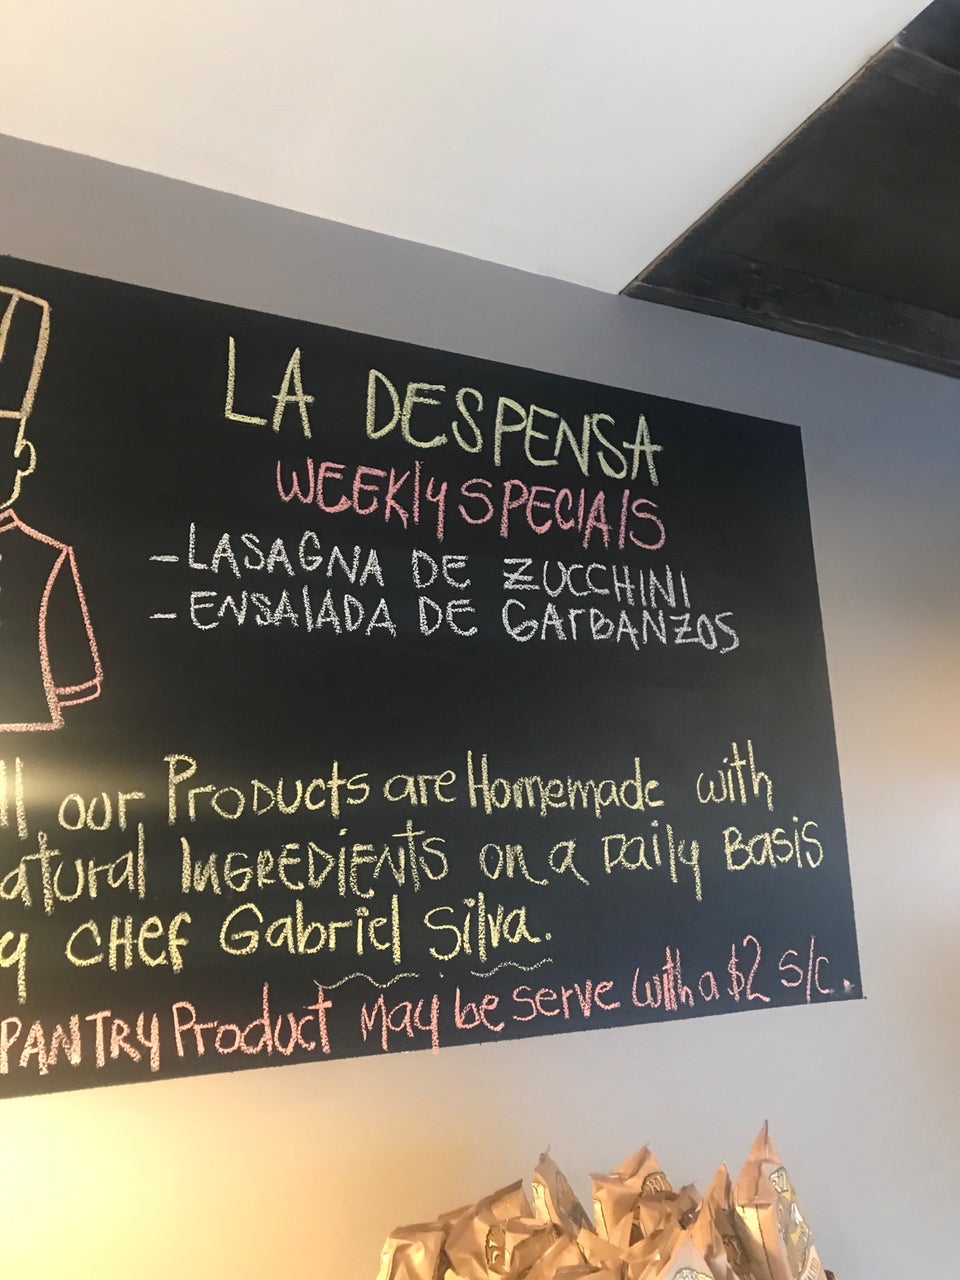 LA DESPENSA
WEEKLY SPECIALS
-LASAGNA DE ZUCCHINI
-ENSALADA DE GARBANZOS
ll our Products are Homemade with
atural INGREDIENTS on a Daily Basis
y CHEF Gabriel Silva.
PANTRY Product may be serve with a $2 s/c.